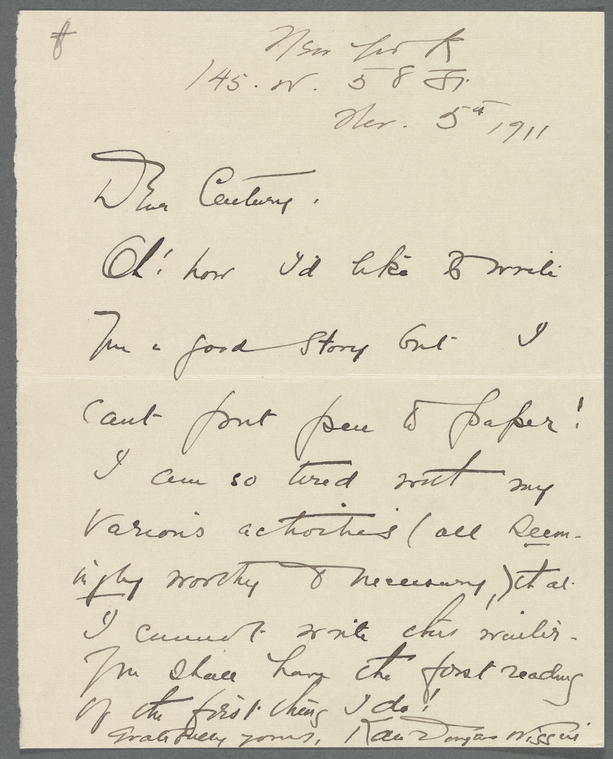 New York
145. W. 58 St.
Nov. 5th 1911
Dear Century.
Oh! how I'd like to write
you a good story but I
can't put pen to paper!
I am so tired with my
various activities (all seem-
ingly worthy & necessary,) that
I cannot write this winter.
You shall have the first reading
of the first thing I do!
Gratefully yours, Kate Douglas Wiggin